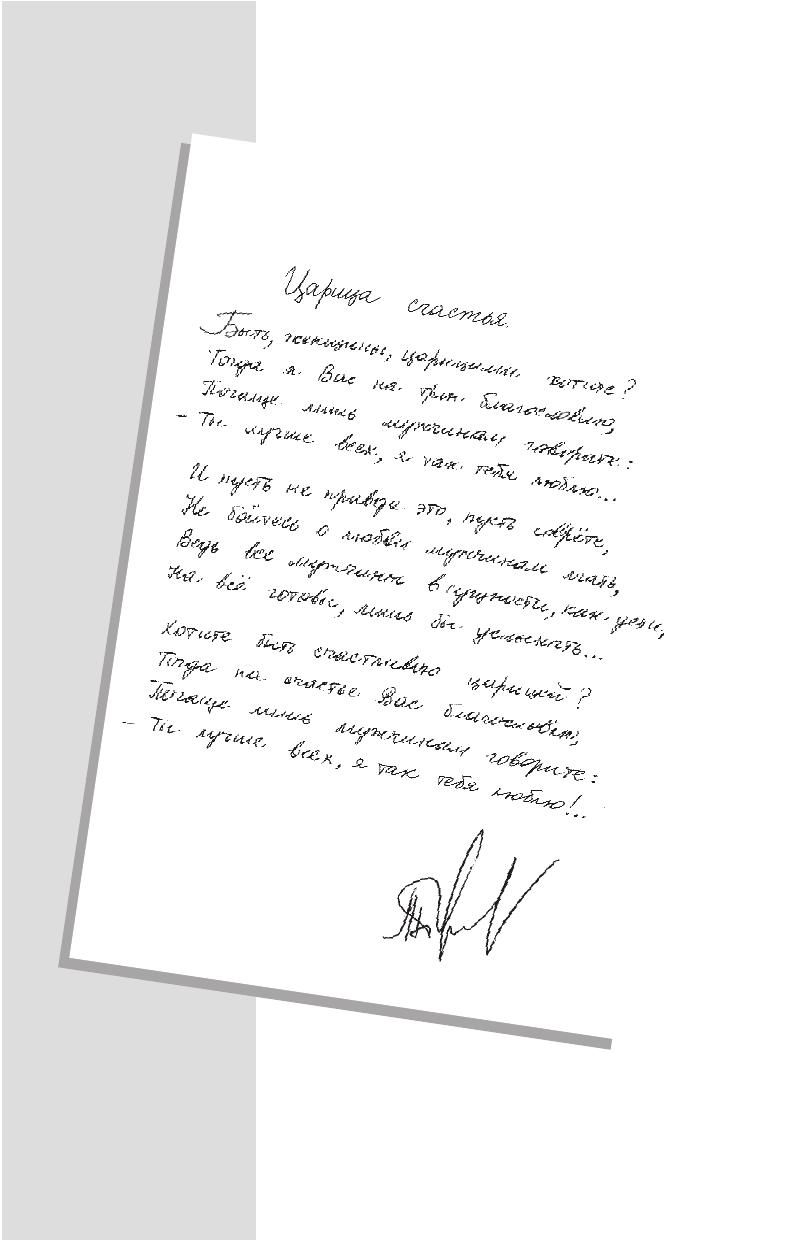 Царица счастья.
Быть, женщины, царицами хотите?
Тогда я Вас на трон благословлю,
Почаще лишь мужчинам говорите:
- Ты лучше всех, я так тебя люблю...
И пусть не правда это, пусть соврёте,
Не бойтесь о любви мужчинам лгать,
Ведь все мужчины в сущности, как дети,
На всё готовы, лишь бы услыхать...
Хотите быть счастливою царицей?
Тогда на счастье Вас благословлю,
Почаще лишь мужчинам говорите:
- Ты лучше всех, я так тебя люблю!..